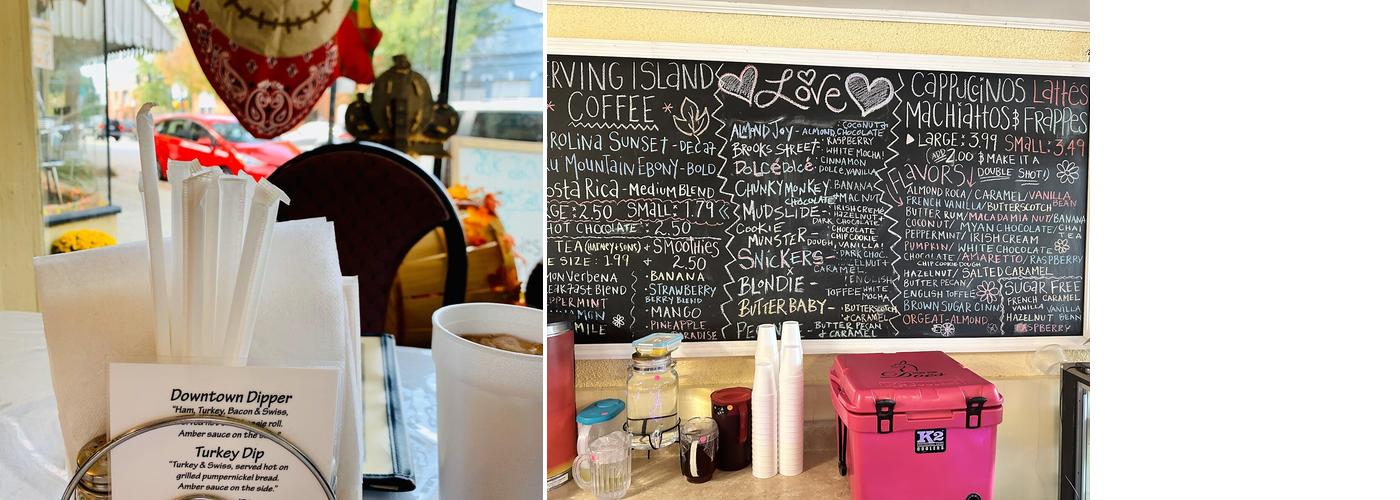 Downtown Dipper
"Ham, Turkey, Bacon & Swiss,
roll.
Amber sauce on the
Turkey Dip
"Turkey & Swiss, served hot on
grilled pumpernickel bread.
Amber sauce on the side."
RVING ISLAND
* COFFEE *
ROLINA SUNSET - DECAF
MOUNTAIN EBONY - BOLD
OSTA RICA - MEDIUM BLEND
RGE: 2.50 SMALL: 1.79
HOT CHOCOLATE: 2.50
TEA (HARNEY & SONS) + SMOOTHIES
E SIZE: 1.99 + 2.50
MON VERBENA
EAKFAST BLEND
PPERMINT
NNAMON
MILE
• BANANA
• STRAWBERRY
BERRY BLEND
• MANGO
• PINEAPPLE
PARADISE
LOVE
ALMOND JOY - ALMOND, CHOCOLATE, COCONUT
BROOKS STREET: RASPBERRY
WHITE MOCHA!
DOLCÉ DOLCÉ: CINNAMON
DOLCE, VANILLA
CHUNKY MONKEY - BANANA
CHOCOLATE MACNUT
MUDSLIDE - IRISH CREME
HAZELNUT +
DARK CHOCOLATE
COOKIE MUNSTER - CHIP COOKIE
DOUGH, VANILLA!
SNICKERS - DARK CHOC.
CARAMEL
BLONDIE - ENGLISH
TOFFEE WHITE
MOCHA
BUTTER BABY - BUTTERSCOTCH
+ CARAMEL
BUTTER PECAN
& CARAMEL
CAPPUCCINOS LATTES
MACHIATTOS & FRAPPES
LARGE: 3.99 SMALL: 3.49
ADD 2.00 $ MAKE IT A
DOUBLE SHOT!)
LAVORS
ALMOND ROCA / CARAMEL / VANILLA BEAN
FRENCH VANILLA / BUTTERSCOTCH
BUTTER RUM / MACADAMIA NUT / BANANA
COCONUT / MYAN CHOCOLATE / CHAI TEA
PEPPERMINT / IRISH CREAM
PUMPKIN / WHITE CHOCOLATE
CHOCOLATE / AMARETTO / RASPBERRY
CHIP COOKIE DOUGH
HAZELNUT / SALTED CARAMEL
BUTTER PECAN /
ENGLISH TOFFEE
BROWN SUGAR CINN
ORGEAT - ALMOND
SUGAR FREE
FRENCH CARAMEL
VANILLA VANILLA
HAZELNUT BEAN
RASPBERRY
K2
COOLERS